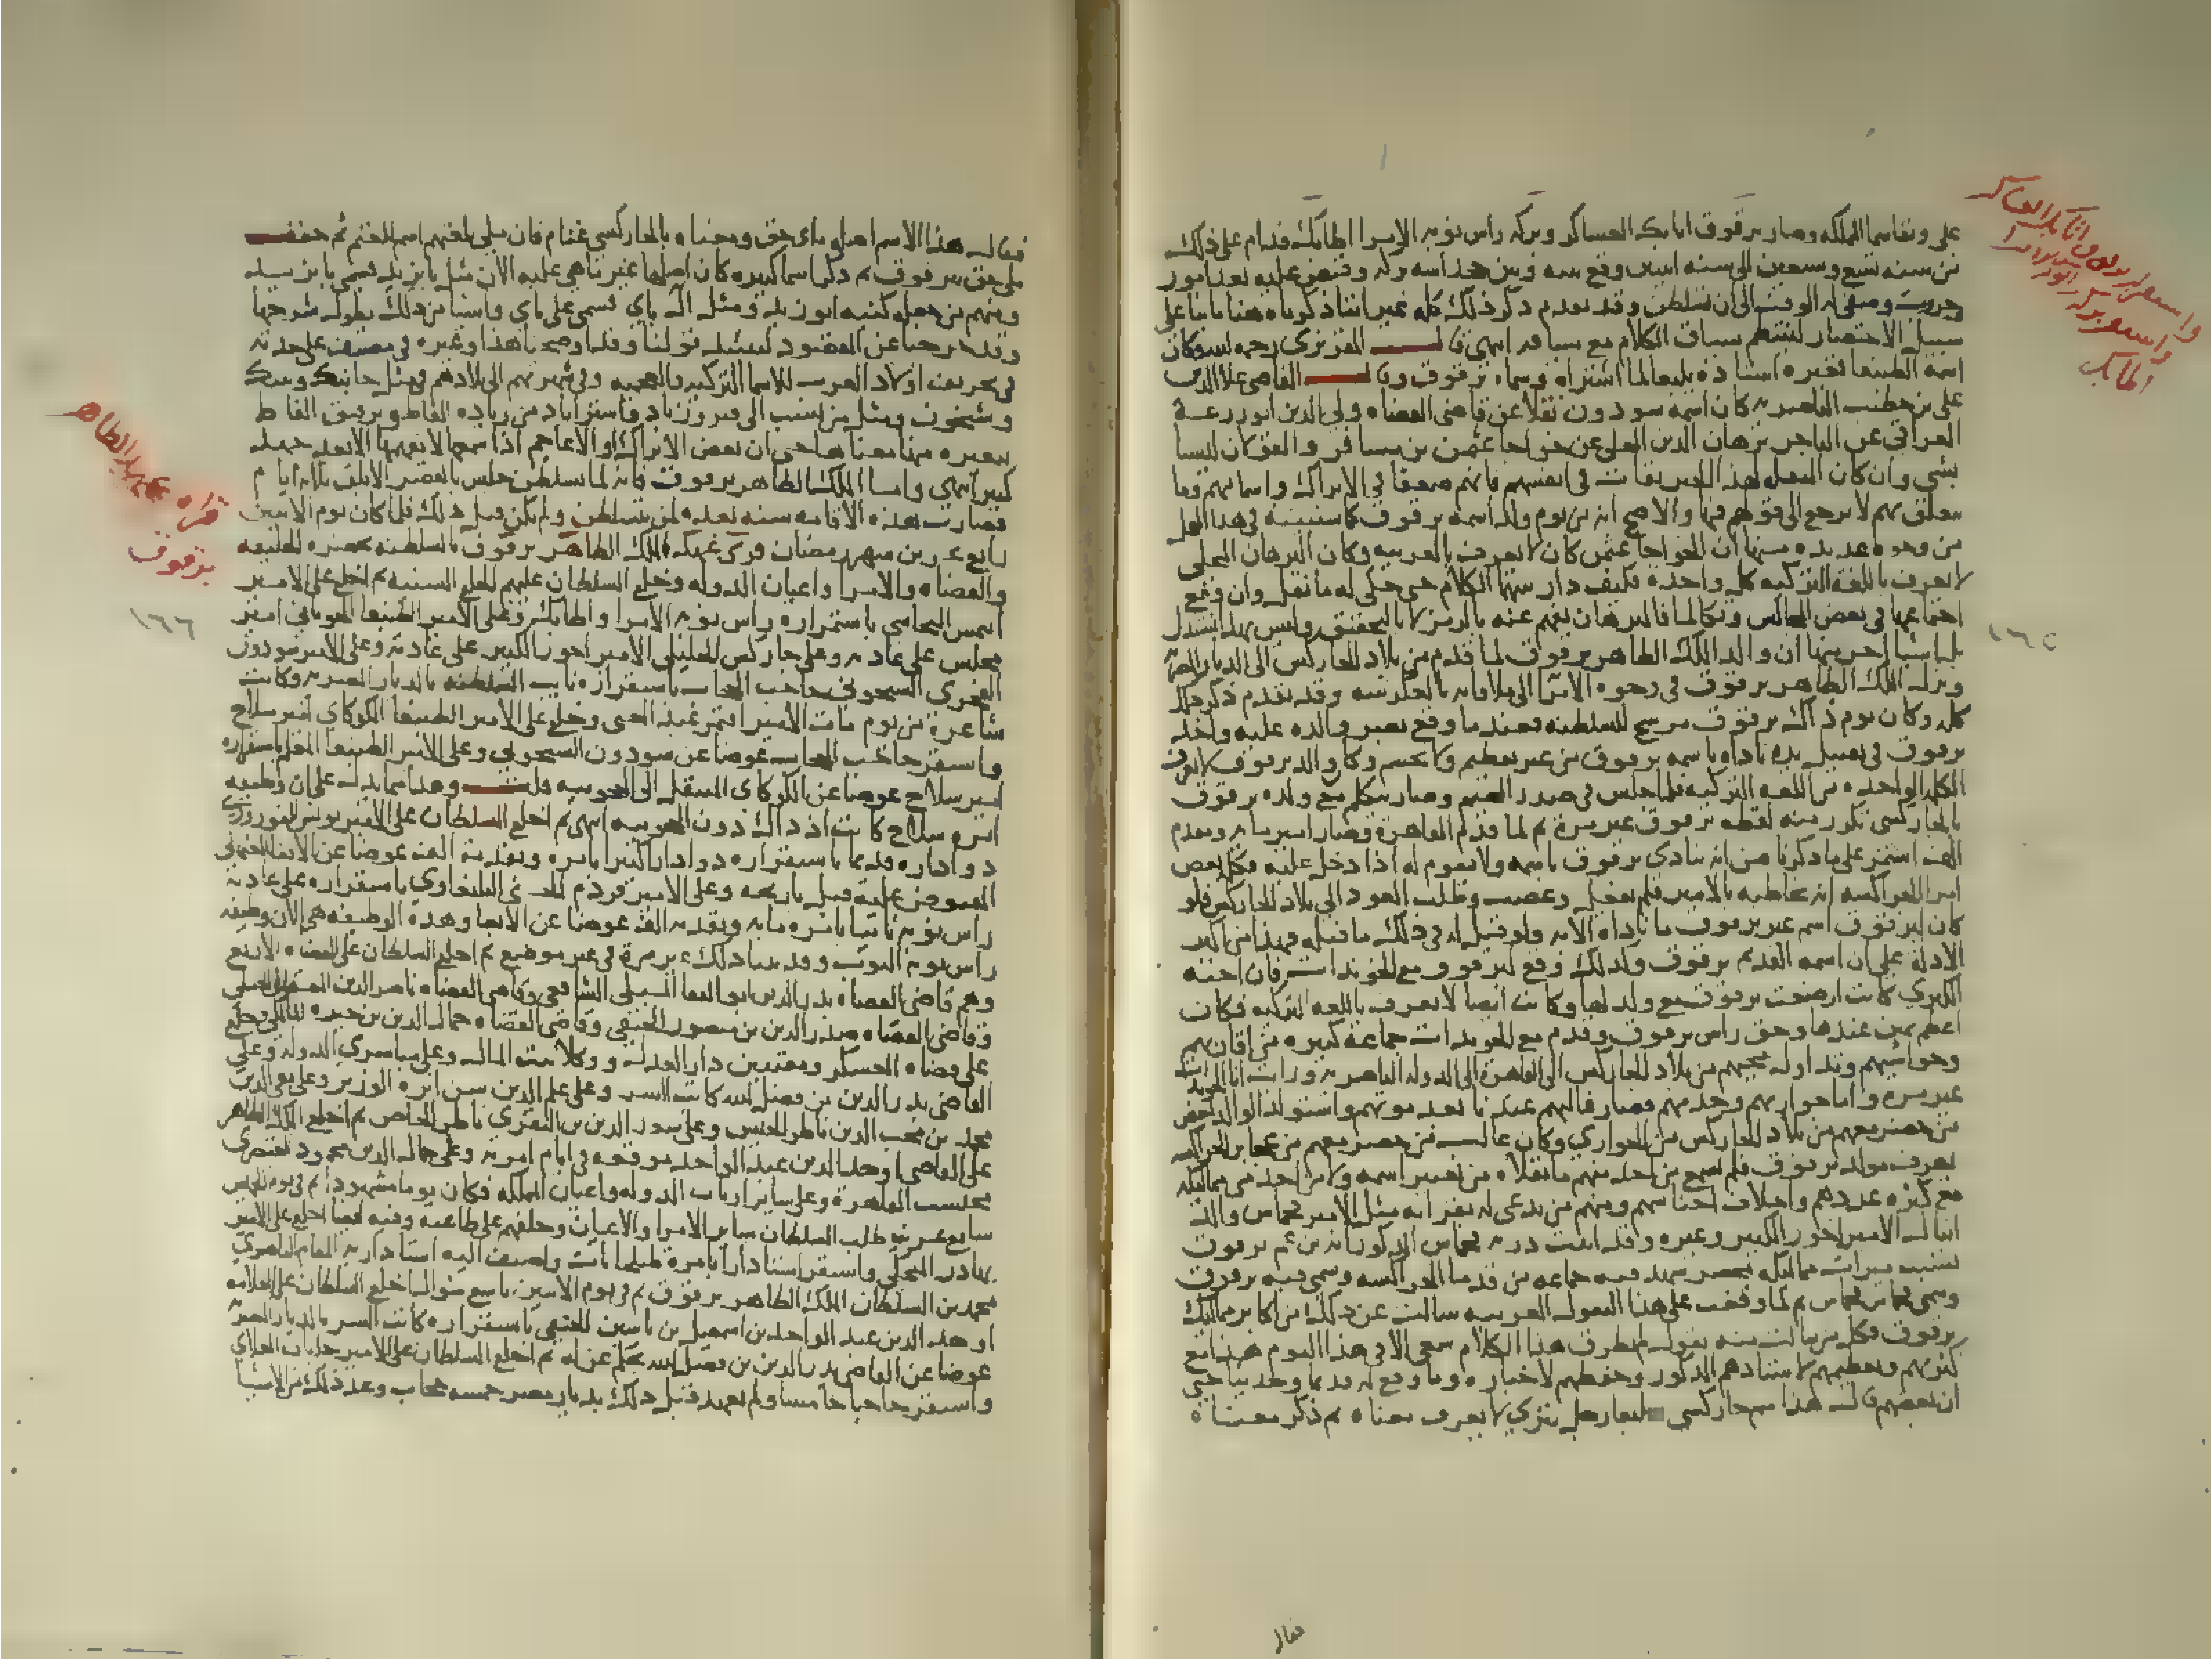 على وتقاسما المملكه وصار برقوق اتابك العساكر وبركه راس نوبه الامرا اطابك فدام على ذلك
من سنه تسع وسبعين الى سنه اثنين وقع بينه وبين
حروب وصفى له الوقت الى ان تسلطن وقد تقدم ذكر ذلك كله غير اننا ذكرناه هنا ثانيا على
سبيل الاختصار لينتظم سياق الكلام مع سياقه انتهى قال المقريزي رحمه الله وكان
اسمه الطنبغا فغيره استاذه يلبغا لما اشتراه وسماه برقوق وقال القاضي علا الدين
على بن خطيب الناصريه كان اسمه سودون نقلا عن قاضى القضاه ولي الدين ابو زرعة
العراقي عن التاجر برهان الدين المحلي عن خواجا عثمن بن مسافر والقولان ليسا
بشي وان كان النقله لهذا الخبر ثقات في انفسهم فانهم ضعفا في الاتراك واسمائهم وما
يتعلق بهم لا يرجع الى قولهم فيها والاصح انه من يوم ولد اسمه برقوق كما سنبينه في هذا المحل
من وجوه عديده منها ان الخواجا عثمن كان لا يعرف بالعربيه وكان البرهان المحلي
لا يعرف باللغة التركيه كلمه واحدة فكيف دار بينهما الكلام حتى حكى له ما نقل وان وقع
اجتماعهما في بعض المجالس وتكالما فالبرهان يفهم عنه بالرمز لا بالتحقيق وليس بهذا نستدل
بل باشيا اخر منها ان والد الملك الظاهر برقوق لما قدم من بلاد الجاركس الى الديار المصرية
ونزل الملك الظاهر برقوق في وجوه الامرا الى ملاقاته بالعكرشه وقد تقدم ذكر ذلك
كله وكان يوم ذاك برقوق مرشح للسلطنه فعند ما وقع بصر والده عليه واخذ
برقوق في تقبيل يده ناداه باسمه برقوق من غير تعظيم ولا تحشم وكان والد برقوق لا يعرف
الكلمه الواحده من اللغه التركيه فلما جلس في صدر المخيم وصار يتكلم مع ولده برقوق
بالجاركسي تكرر منه لفظه برقوق غير مرة ثم لما قدم القاهرة وصار امير مايه ومقدم
الف استمر على ما ذكرنا من انه ينادي برقوق باسمه ولا يقوم له اذا دخل عليه فكلم بعض
امرا الجراكسه ان يخاطبه بالامير فلم يفعل وغضب وطلب العود الى بلاد الجاركس فلو
كان لبرقوق اسم غير برقوق ما ناداه الا به ولو قيل له في ذلك ما قبله فهذا من اكبر
الادلة على ان اسمه القديم برقوق وكذلك وقع لبرقوق مع الخوندات فان اخته
الكبرى كانت ارضعت برقوق مع ولد لها وكانت ايضا لا تعرف باللغه التركيه فكان
اعظم يمين عندها وحق راس برقوق وقدم مع الخوندات جماعة كبيره من اقاربهم
وحواشيهم وتداوله مجيهم من بلاد الجاركس الى القاهرة الى الدوله الناصريه ورايت انا الخوندات
غير مره واما جواريهم وخدمهم فصار غالبهم عندنا بعد موتهم واستولد الوالد بعض
من حضر معهم من بلاد الجاركس من الجواري وكان غالب من حضر معهم من عجايز الجراكسه
يعرف مولد برقوق فلم نسمع من احد منهم ما نقلاه من تغيير اسمه ولا من احد من مماليكه
مع كثره عددهم واختلاف اجناسهم ومنهم من يدعى له بقرابه مثل الامير قجماس والد
اينال الامير اخور الكبير وغيره وقد اثبت ذريه قجماس المذكور انه بن عم برقوق
بسبب ميراث مماليكه بمحضر شهد فيه جماعه من قدما الجراكسه وسمى فيه برقوق
وسمى قجماس قجماس ثم لما وقفت على هذا النقول الغريبه سالت عن ذلك من اكابر مماليك
برقوق فكل من سالت منه يقول لم يطرق هذا الكلام سمعي الا في هذا اليوم هذا مع
كثرتهم وتعظيمهم لاستاذهم المذكور وحفظهم لاخباره وما وقع له قديما وحديثا حتى
ان بعضهم قال هذا اسم جاركسي يلبغا رجل تتري لا يعرف معناه ثم ذكر معناه
فقال هذا الاسم اصله ملى حق ومعناه بالجاركسي غنام فان ملى بلغتهم اسم للغنم ثم خفف
ملى حق ببرقوق ثم ذكر اسما كثيره كان اصلها غير ما هي عليه الان مثل بايزيد فسمي بايزير
ومنهم من جعله كنيه ابو زيد ومثل الى باى فسمى على باى واشيا من ذلك يطول شرحها
وقد خرجنا عن المقصود لتثبيت قولنا وقد اوضحنا هذا وغيره في مصنف على حدته
في تحريف اولاد العرب للاسما التركيه والعجميه وفي شهرتهم الى بلادهم في مثل جانبك
وشيخون ومثل من ينسب الى فيروزاباد واستراباد من زياده الفاظ وترقيق الفاظ
يتغير منها معناها حتى ان بعض الاتراك او الاعاجم اذا سمعها لا يفهمها الا بعد جهد
كبير انتهى واما الملك الظاهر برقوق فانه لما تسلطن جلس بالقصر الابلق ثلاثه ايام
فصارت هذه الاقامه سنه بعده لمن يتسلطن ولم يكن قبل ذلك فلما كان يوم الاثنين
رابع عشرين شهر رمضان قرئ عهد الملك الظاهر برقوق بالسلطنه بحضره الخليفه
والقضاه والامرا واعيان الدوله وخلع السلطان عليهم الخلع السنيه ثم اخلع على الامير
ايتمش البجاسي باستمراره راس نوبه الامرا واطابك وعلى الامير الطنبغا الجوباني امير
مجلس على عادته وعلى جاركس الخليلي الامير اخور الكبير على عادته وعلى الامير سودون
الفخري الشيخوني حاجب الحجاب باستقراره نايب السلطنه بالديار المصريه وكانت
شاغرة من يوم مات الامير اقتمر عبد الغني وخلع على الامير الطنبغا الكوكاي امير سلاح
واستقر حاجب الحجاب عوضا عن سودون الشيخوني وعلى الامير الطنبغا المعلم باستقراره
امير سلاح عوضا عن الكوكاي المنتقل الى الحجوبيه قلت وهذا مما يدل على ان وظيفه
امره سلاح كانت اذ ذاك دون الحجوبيه انتهى ثم اخلع السلطان على الامير يونس النوروزي
دواداره قديما باستقراره دوادارا كبيرا بامره وتقدمة الف عوضا عن الابغا العثماني
المقبوض عليه قبل تاريخه وعلى الامير قردم الحسني اليلبغاوي باستقراره على عادته
راس نوبه ثانيا بامره مايه وتقدمه الف عوضا عن الابغا وهذه الوظيفه هي الان وظيفه
راس نوبه النوب وقد بينا ذلك غير مرة في غير موضع ثم اخلع السلطان على القضاه الاربع
وهم قاضى القضاه بدر الدين ابو البقا السبكي الشافعي وقاضى القضاه ناصر الدين العسقلاني الحنبلي
وقاضى القضاه صدر الدين بن منصور الحنفي وقاضى القضاه جمال الدين بن خيره المالكي وخلع
على قضاه العسكر ومفتيين دار العدل ووكلا بيت المال وعلى مباشري الدوله وعلى
القاضي بدر الدين بن فضل الله كاتب السر وعلى علم الدين سن ابره الوزير وعلى تقي الدين
محمد بن محب الدين ناظر الجيش وعلى سعد الدين بن البقري ناظر الخاص ثم اخلع الملك الظاهر
على القاضي اوحد الدين عبد الواحد موقعه في ايام امرته وعلى جمال الدين محمود القيصري
محتسب القاهرة وعلى ساير ارباب الدوله واعيان المملكه فكان يوما مشهودا ثم في يوم الخميس
سابع عشرينه طلب السلطان ساير الامرا والاعيان وحلفهم على طاعته وفيه ايضا اخلع على الامير
بهادر المنجكي واستقر استادارا بامرة طبلخانات واضيف اليه استاداريه المقام الناصري
محمد بن السلطان الملك الظاهر برقوق ثم في يوم الاثنين تاسع شوال اخلع السلطان على العلامه
اوحد الدين عبد الواحد بن اسمعيل بن ياسين الحنفي باستقراره كاتب السر بالديار المصرية
عوضا عن القاضي بدر الدين بن فضل الله بحكم عزله ثم اخلع السلطان على الامير جلبان العلاي
واستقر حاجبا خامسا ولم يعهد قبل ذلك بديار مصر خمسه حجاب وعد ذلك من الاشيا
واستقرار برقوق اتابك العساكر
واستقر بركه راس نوبه الامرا
اطابك
قراه عهد الظاهر
برقوق
١٦٥
١٦٦
فقال